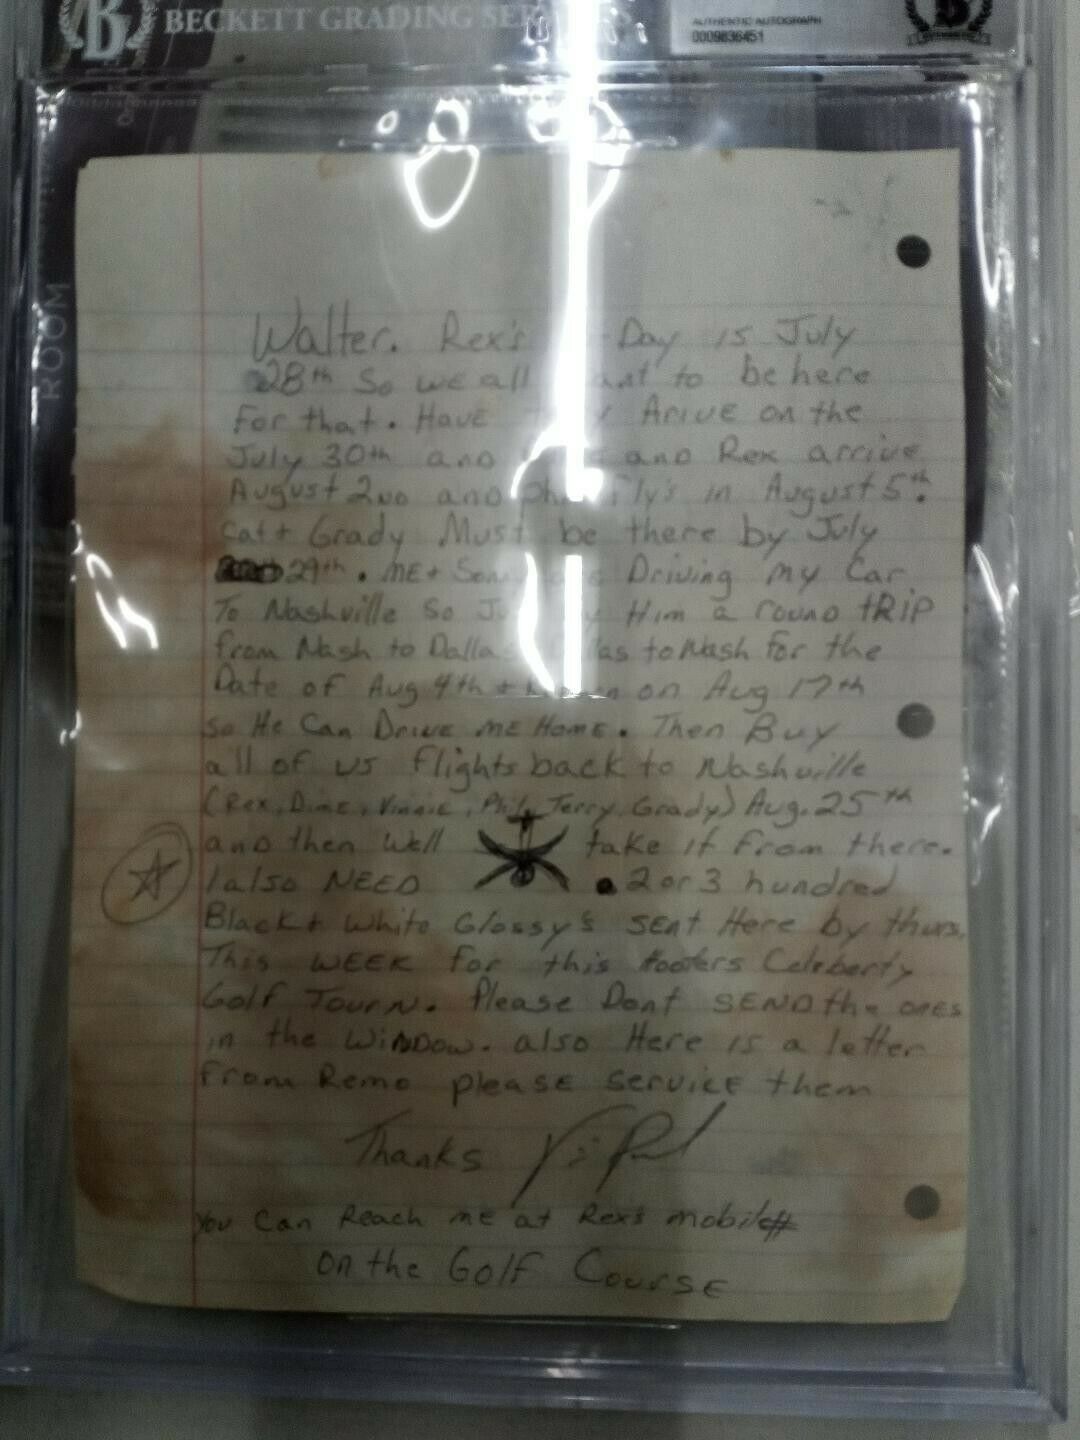 BECKETT GRADING
AUTHENTIC AUTOGRAPH
0009836451
ROOM
Walter. Rex's -Day is July
28th So we all to be here
For that. Have Arive on the
July 30th and and Rex arrive
August 2nd and Fly's in August 5th.
Cat + Grady Must be there by July
29th. ME + Driving my Car
To Nashville So Him a round tRIP
from Nash to Dallas to Nash for the
Date of Aug 4th + on Aug 17th
so He Can Drive me Home. Then Buy
all of us flights back to Nashville
(Rex, Dime, Vinnie, Phil, Jerry, Grady) Aug. 25th
and then Well take it from there.
I also NEED 2 or 3 hundred
Black + White Glossy's SEnt Here by thurs.
This WEEK for this Hooters Celeberty
Golf Tourn. Please Dont SEND the ones
in the Window. also Here is a letter
From Remo please service them
Thanks
You Can Reach me at Rex's mobile#
on the Golf Course